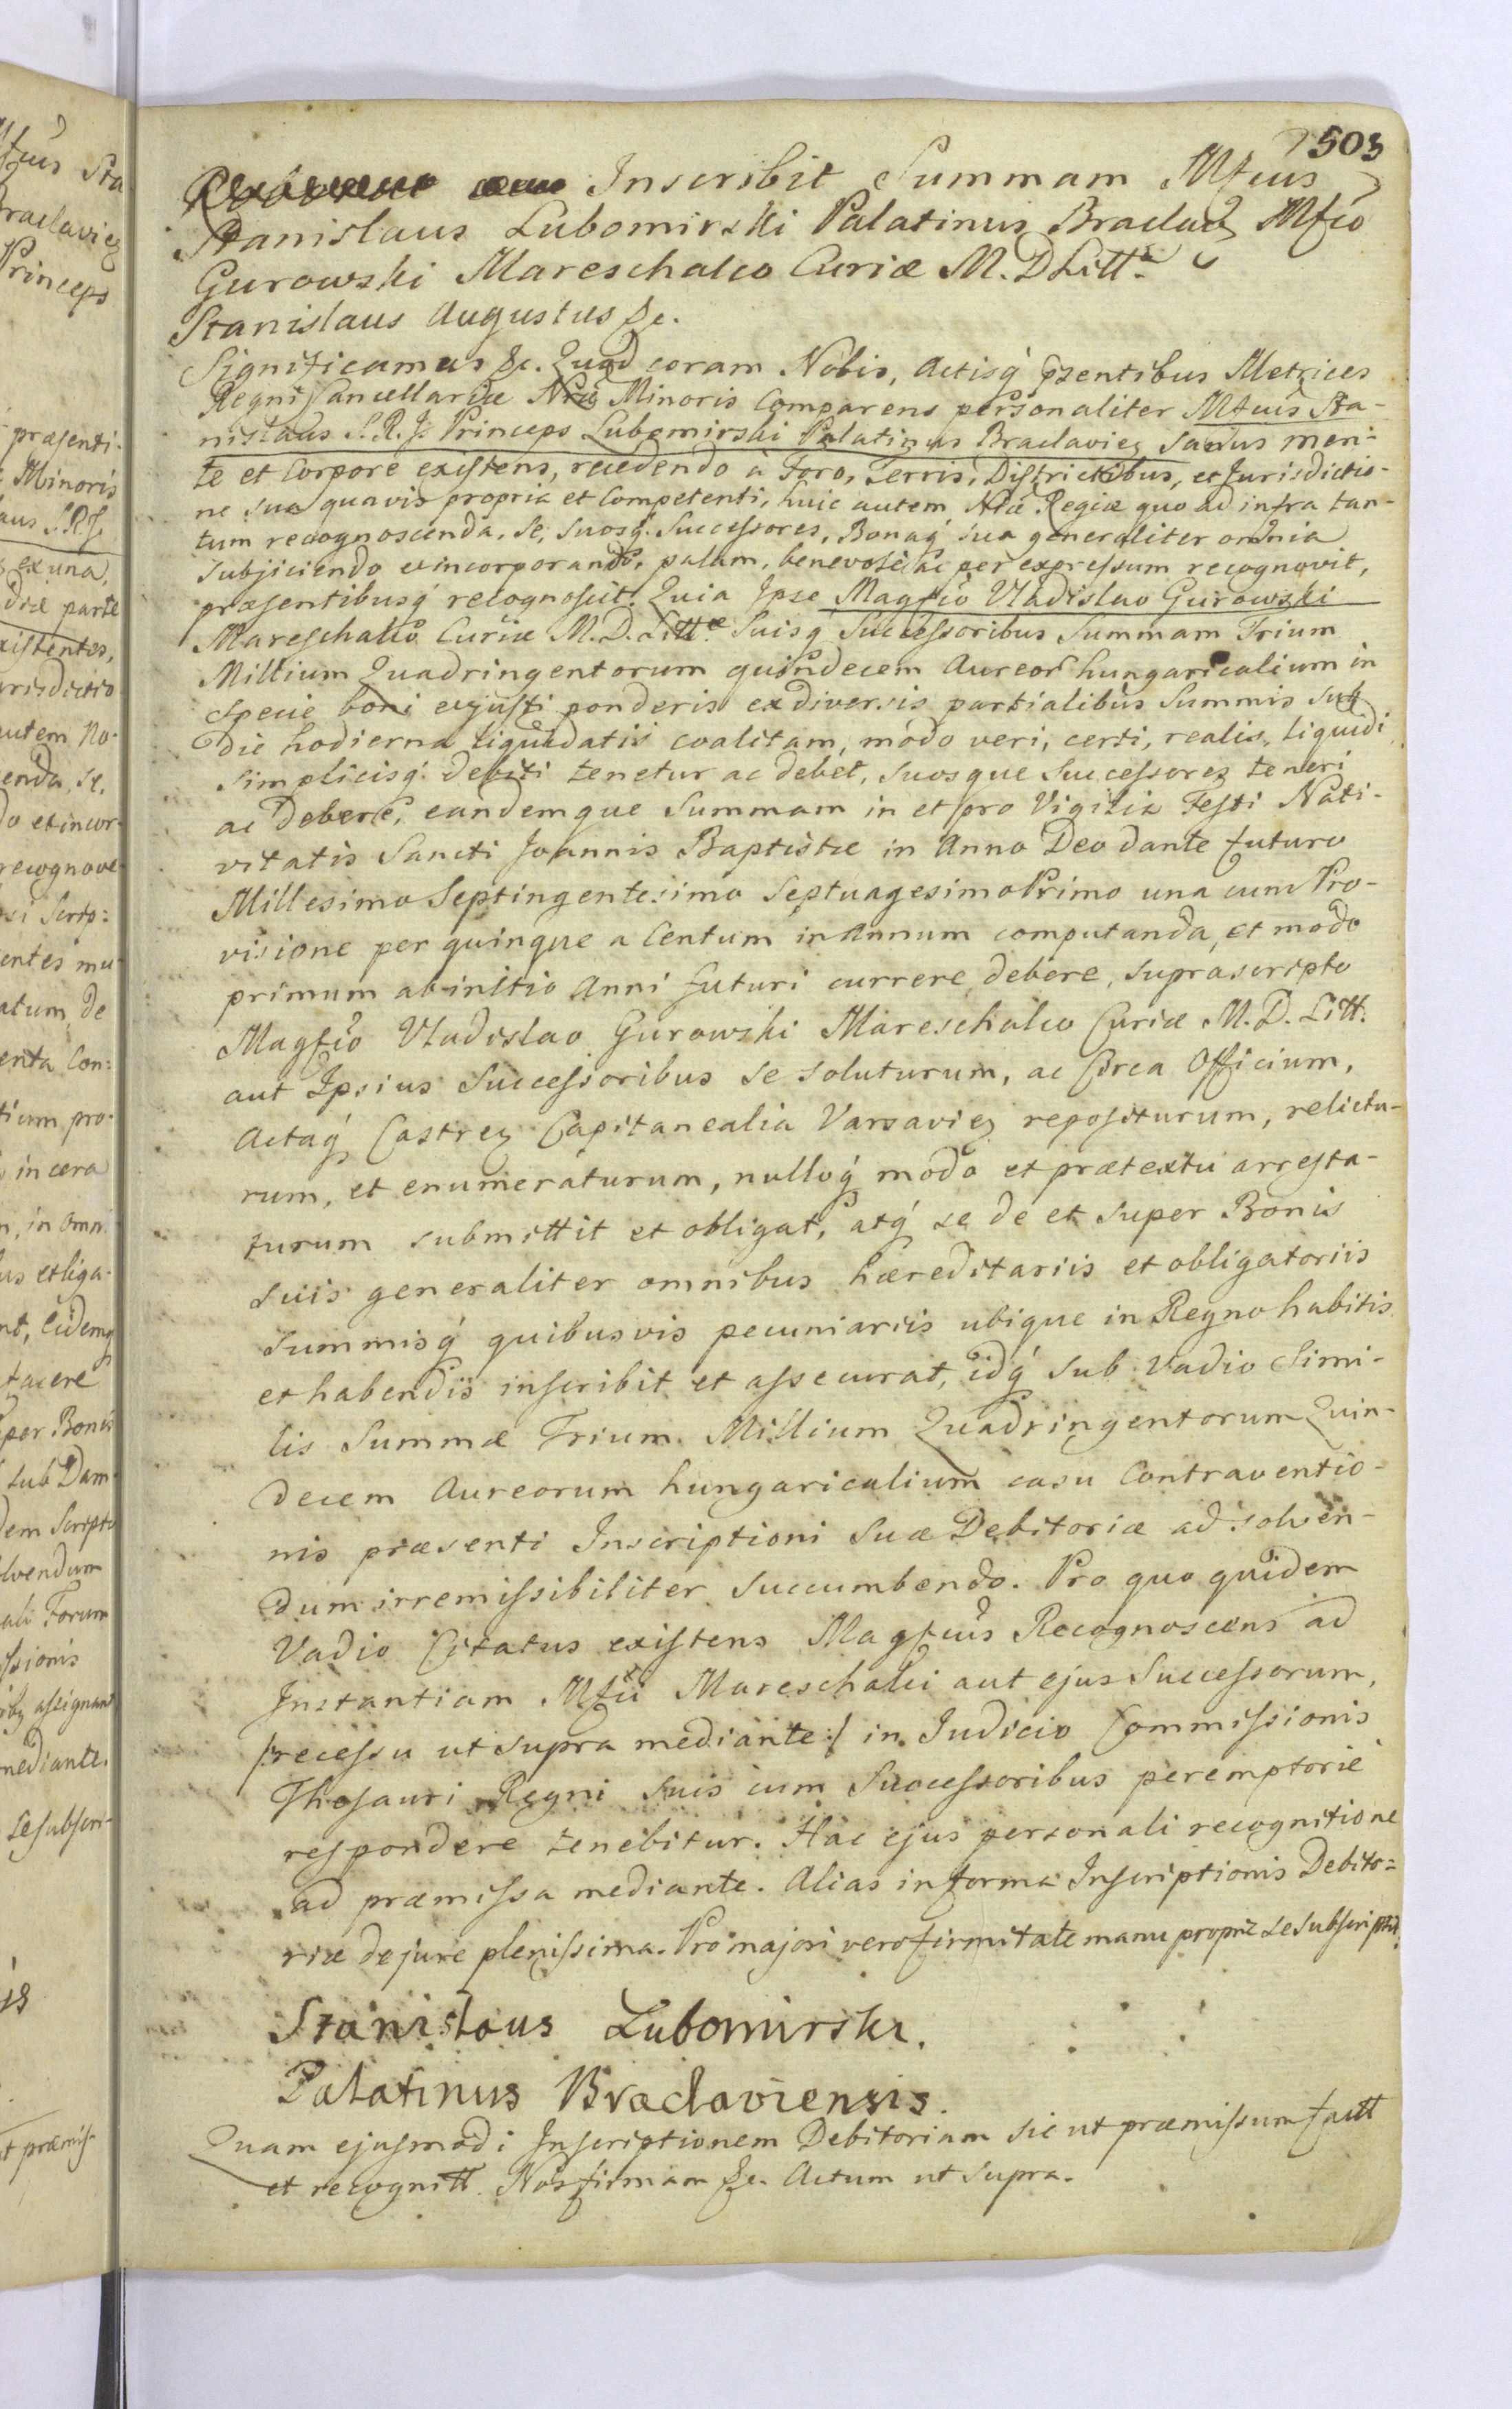 503
Inscribit Summam Mfcus
Stanislaus Lubomirski Palatinus Braclav Mfco
Gurowski Mareschalco Curiæ M. D. Litt.
Stanislaus Augustus &c.
Significamus &c. Quod coram Nobis, Actisq́ psentibus Metrices
Regni Cancellariæ Nrae Minoris Comparens personaliter Mfcus Sta-
nislaus S. R. J. Princeps Lubomirski Palatinus Braclaviez Sanus men-
te et Corpore existens, recedendo à Foro, Terris, Districtibus, et Jurisdictio-
ne sua quavis propria et Competenti, huic autem Nræ Regiæ quo ad infra tan-
tum recognoscenda, se, suosq́. Successores, Bonaq́ sua generaliter omnia
subjiciendo et incorporando, palam, benevole ac per expressum recognovit,
præsentibusq́ recognoscit. Quia Ipse Magfco Vladislao Gurowski
Mareschalco Curiæ M. D. Littæ Suisq́ Successoribus Summam Trium
Millium Quadringentorum quindecem Aureor hungaricalium in
specie boni et justi ponderis ex diversis partialibus Summis sub
die hodierna liquidatis coalitam, módo veri, certi, realis, liquidi
simplicisq́. debiti tenetur ac debet, suosque Successores teneri
ac debere, eandemque Summam in et pro Vigilia Festi Nati-
vitatis Sancti Joannis Baptistæ in Anno Deo dante futuro
Millesimo Septingentesimo Septuagesimo Primo una cum Pro-
visione per quinque a Centum in Annum computanda, et modo
primum ab initio Anni futuri currere debere, suprascripto
Magfco Vladislao Gurowski Mareschalco Curiæ M. D. Litt.
aut Ipsius Successoribus se soluturum, ac Circa Officium,
Actaq́ Castrez Capitanealia Varsaviez repositurum, relictu-
rum, et enumeraturum, nulloq́ modo et prætextu arresta-
turum submittit et obligat, atq́ se de et super Bonis
suis generaliter omnibus hæreditariis et obligatoriis
summisq́ quibusvis pecuniariis ubique in Regno habitis
et habendis inscribit et assecurat, idq́ sub Vadio Simi-
lis Summæ Trium Millium Quadringentorum Quin-
decem Aureorum hungaricalium casu Contraventio-
nis præsenti Inscriptioni Suæ Debitoriæ ad solven-
dum irremissibiliter succumbendo. Pro quo quidem
Vadio Citatus existens Magfcus Recognoscens ad
Instantiam Mfci Mareschalci aut ejus Successorum,
/:recessu ut supra mediante:/ in Judicio Commissionis
Thesauri Regni suis cum Successoribus peremptorié
respondere tenebitur. Hac ejus personali recognitione
ad præmissa mediante. Alias in forma Inscriptionis Debito=
riæ de jure plenissima. Pro majori vero firmitate manu propria se subscripsit.
Stanislaus Lubomirski.
Palatinus Braclaviensis.
Quam ejusmodi Inscriptionem Debitoriam sic ut præmissum factt
et recognitt. Nos firmam &c. Actum ut supra.